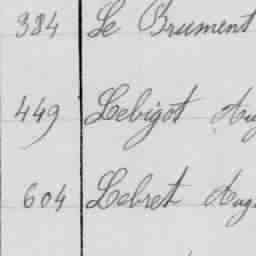 384 Le Brument
449 Lebigot Aug
604 Lebret Aug